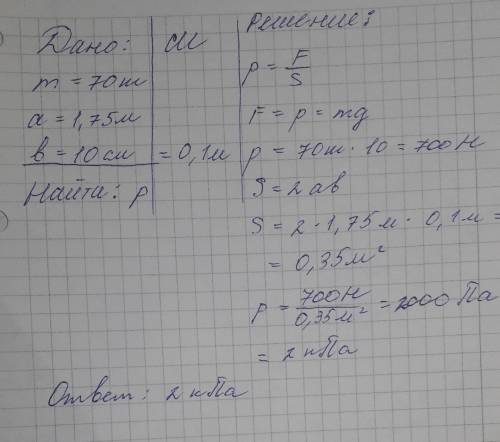 Дано:
m = 70т
a = 1,75м
в = 10см
Найти: p
СИ
= 0,1м
Решение:
p = F/S
F = p = mg
p = 70т · 10 = 700Н
S = 2ав
S = 2 · 1,75м · 0,1м =
= 0,35м²
p = 700Н/0,35м² = 2000 Па
= 2 кПа
Ответ: 2 кПа